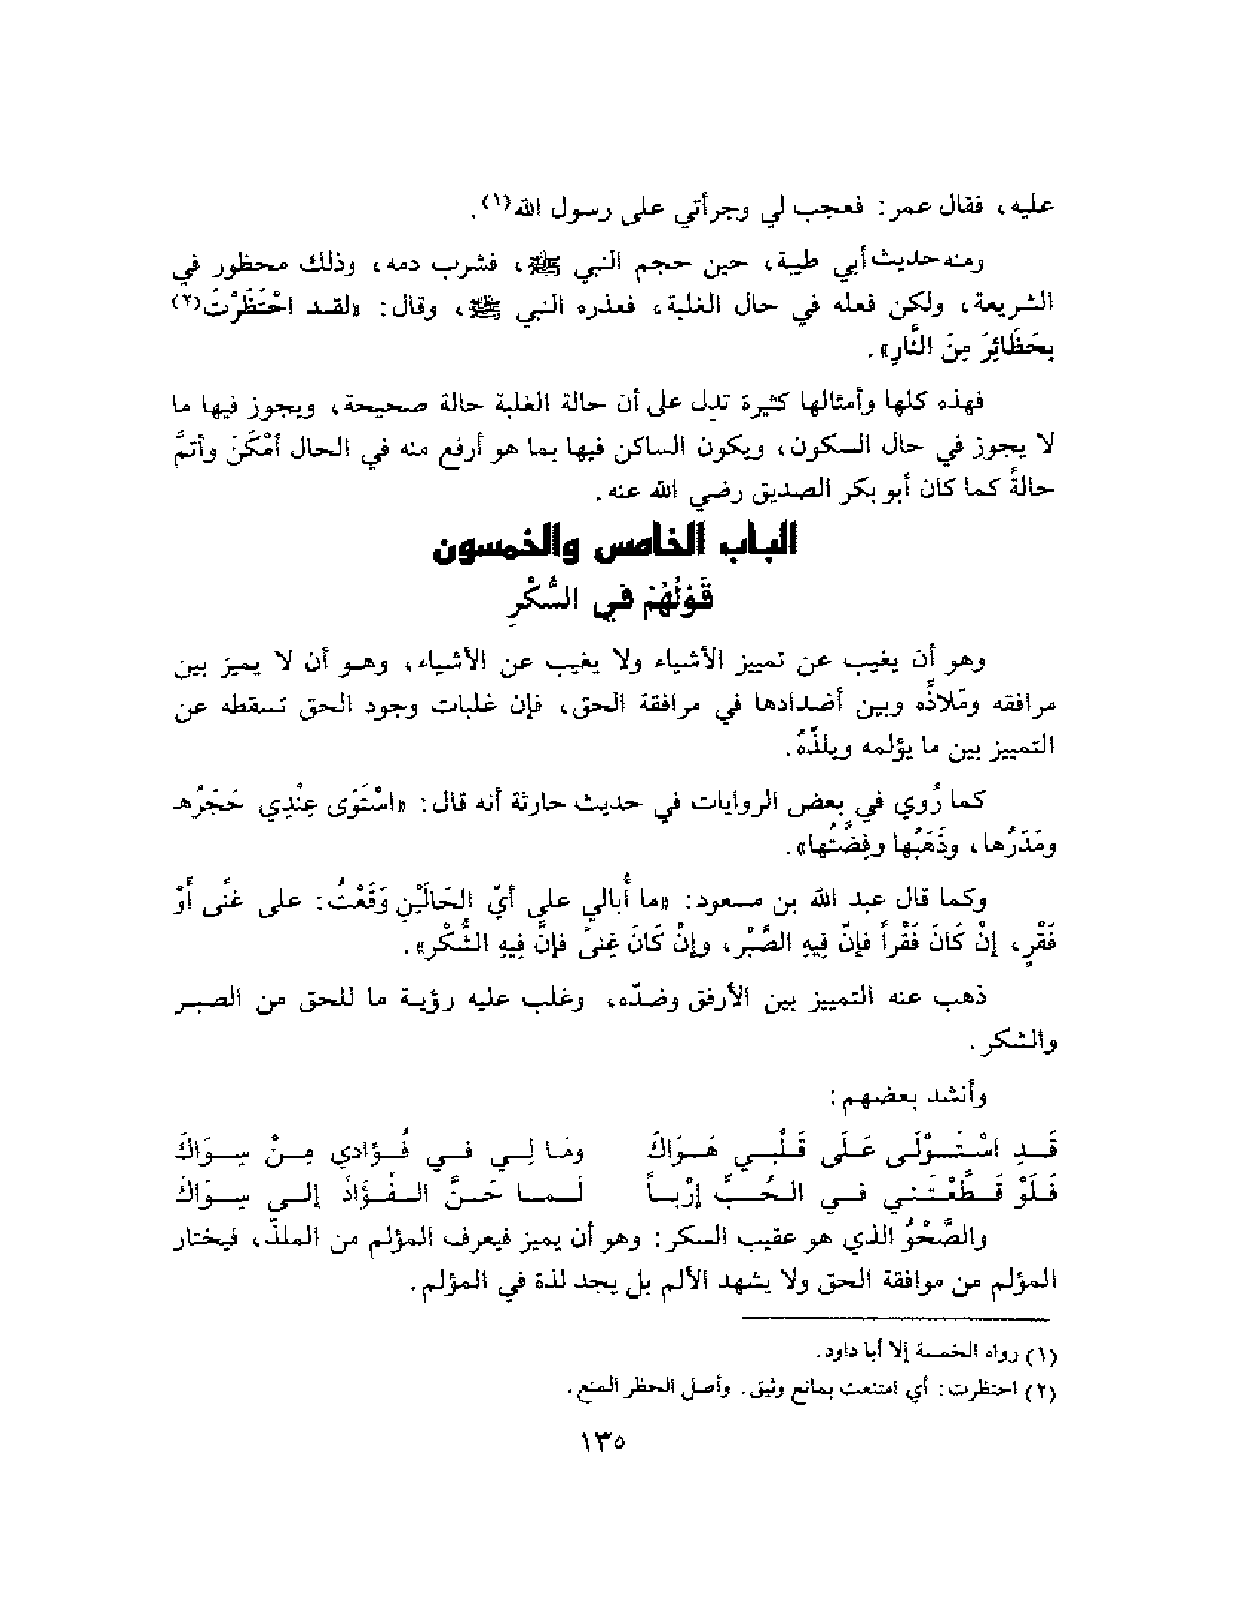 عليه، فقال عمر: فعجب لي وجرأتي على رسول الله(١).
ومنه حديث أبي طيبة، حين حجم النبي ﷺ، فشرب دمه، وذلك محظور في
الشريعة، ولكن فعله في حال الغلبة، فعذره النبي ﷺ، وقال: «لقد احْتَظَرْتَ(٢)
بِحَظَائِرَ مِنَ النَّارِ».
فهذه كلها وأمثالها كثيرة تدل على أن حالة الغلبة حالة صحيحة، ويجوز فيها ما
لا يجوز في حال السكون، ويكون الساكن فيها بما هو أرفع منه في الحال أمْكَنَ وأتمَّ
حالةً كما كان أبو بكر الصديق رضي الله عنه.
الباب الخامس والخمسون
قَوْلُهُمْ في السُّكْرِ
وهو أن يغيب عن تمييز الأشياء ولا يغيب عن الأشياء، وهو أن لا يميز بين
مرافقه ومَلاذِّه وبين أضدادها في مرافقة الحق، فإن غلبات وجود الحق تسقطه عن
التمييز بين ما يؤلمه ويلذّهُ.
كما رُوي في بعض الروايات في حديث حارثة أنه قال: «اسْتَوَى عِنْدِي حَجَرُها
ومَدَرُها، وذَهَبُها وفِضَّتُها».
وكما قال عبد الله بن مسعود: «ما أُبالي على أيّ الحَالَيْنِ وَقَعْتُ: على غنًى أَوْ
فَقْرٍ، إنْ كَانَ فَقْراً فإنّ فِيهِ الصَّبْرَ، وإنْ كَانَ غِنىً فإنَّ فِيهِ الشُّكْرَ».
ذهب عنه التمييز بين الأرفق وضدّه، وغلب عليه رؤية ما للحق من الصبر
والشكر.
وأنشد بعضهم:
قَدِ اسْتَوْلَى عَلَى قَلْبِي هَوَاكَ ومَا لِي فِي فُؤادِي مِنْ سِوَاكَ
فَلَوْ قَطَّعْتَنِي فِي الحُبِّ إرْباً لَمَا حَنَّ الفُؤَادُ إلى سِوَاكَ
والصَّحْوُ الذي هو عقيب السكر: وهو أن يميز فيعرف المؤلم من الملذّ، فيختار
المؤلم من موافقة الحق ولا يشهد الألم بل يجد لذة في المؤلم.
(١) رواه الخمسة إلا أبا داود.
(٢) احتظرت: أي امتنعت بمانع وثيق. وأصل الحظر المنع.
١٣٥